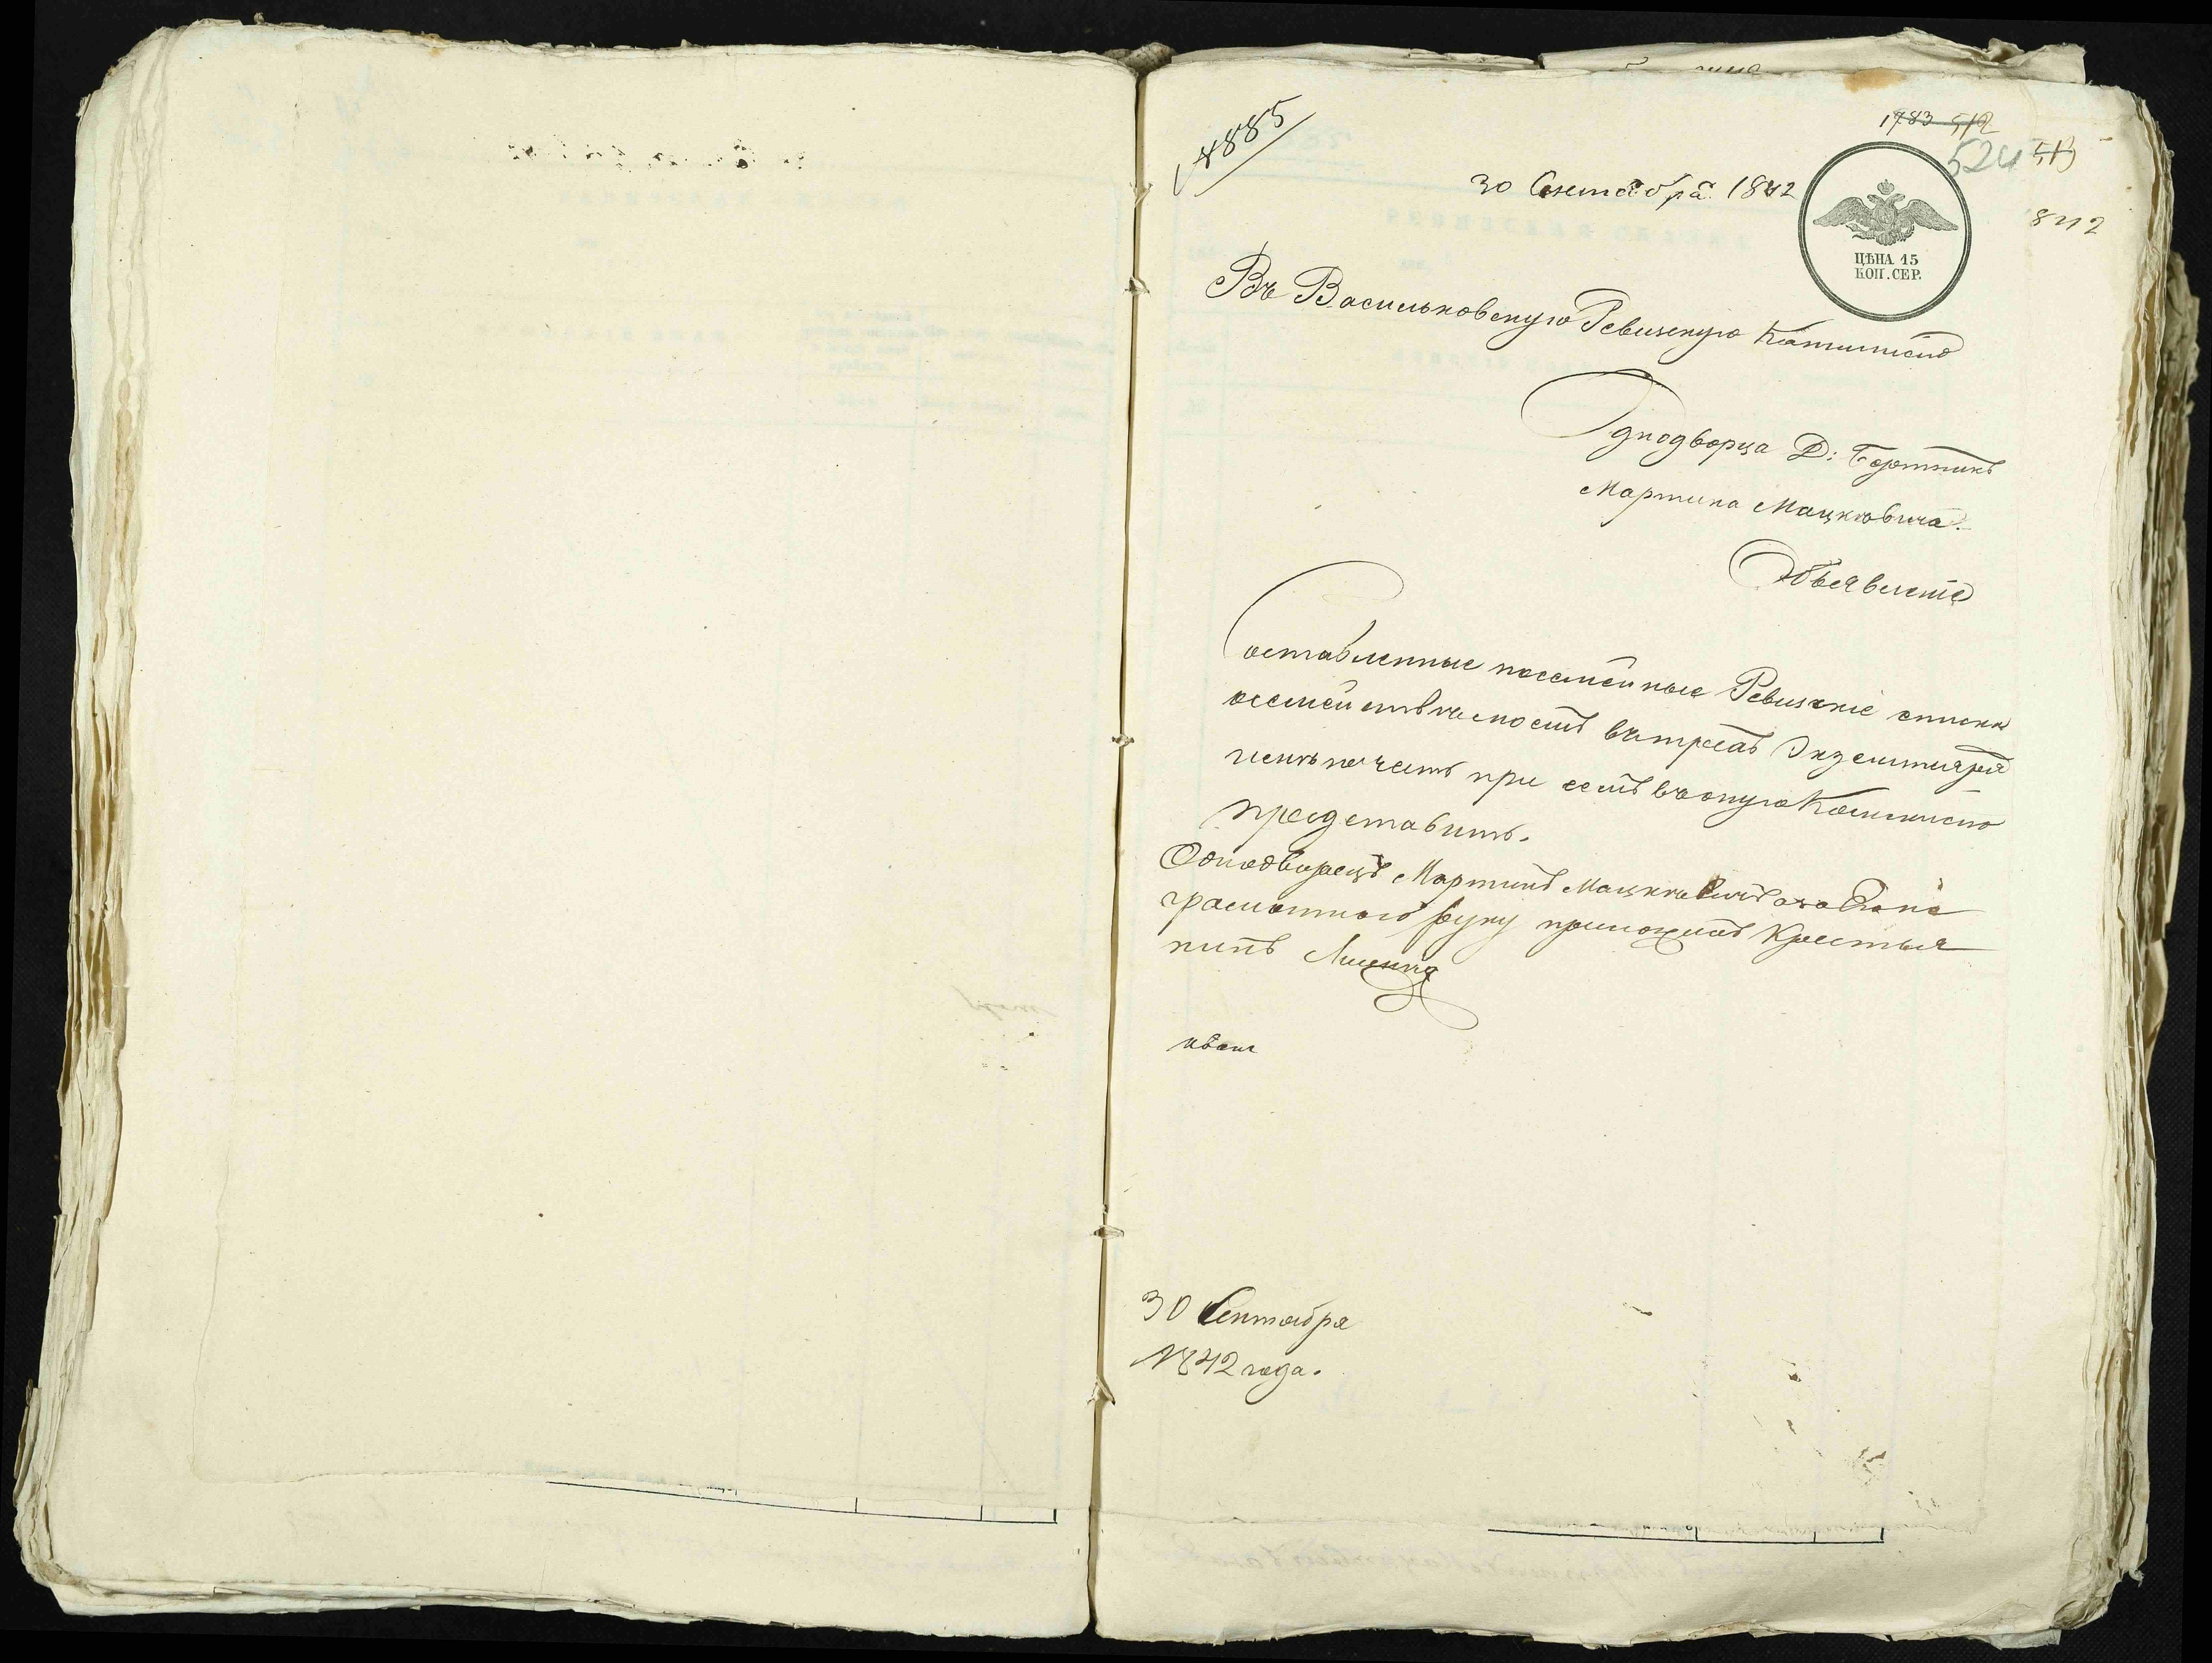 4885
1783 512
524 513
30 Сентября 1842
842
ЦѢНА 15
КОП. СЕР.
Въ Васильковскую Ревизскую Коммисію
Однодворца Д: Бортникъ
Мартина Мацкѣвича.
Объявленіе
Составленные посемейные Ревизскіе списки
о семействѣ моемъ въ трехъ Экземплярахъ
честь при семъ въ оную Коммисію
представить.
Однодворецъ Мартинъ Мацкѣвичъ а за Его не
грамотного руку приложилъ Крестья
нинъ
30 Сентября
1842 года.